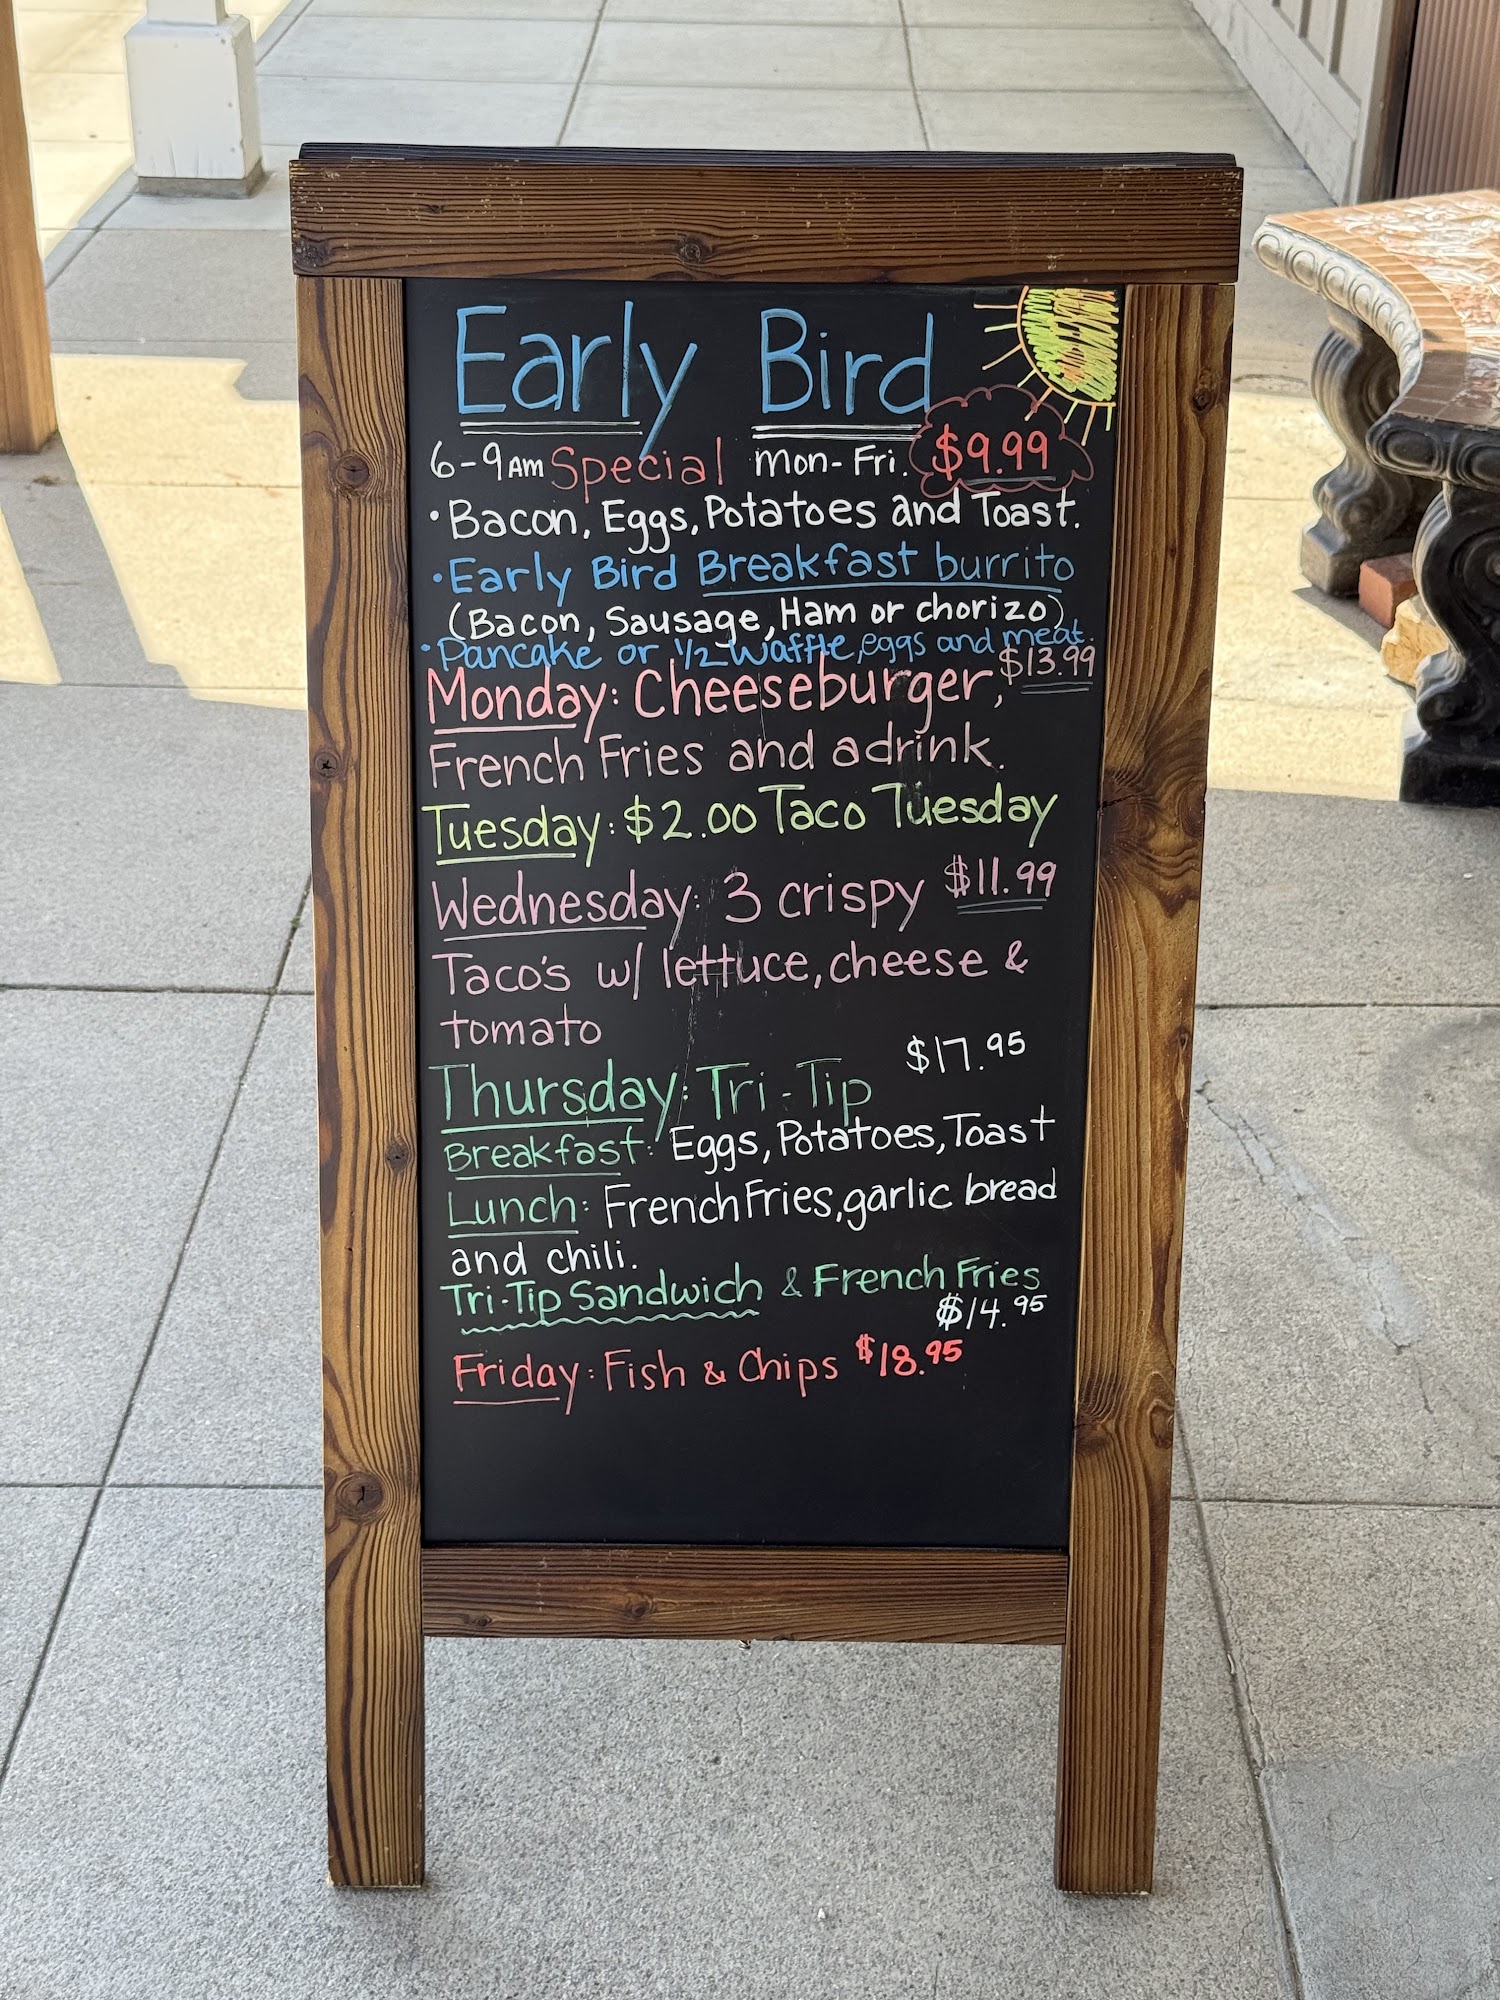 Early Bird
6-9AM Special Mon-Fri. $9.99
• Bacon, Eggs, Potatoes and Toast.
• Early Bird Breakfast burrito
(Bacon, Sausage, Ham or chorizo)
• Pancake or 1/2 Waffle, eggs and meat.
Monday: Cheeseburger, $13.99
French Fries and a drink.
Tuesday: $2.00 Taco Tuesday
Wednesday: 3 crispy $11.99
Taco's w/ lettuce, cheese &
tomato
Thursday: Tri-Tip $17.95
Breakfast: Eggs, Potatoes, Toast
Lunch: French Fries, garlic bread
and chili.
Tri-Tip Sandwich & French Fries
$14.95
Friday: Fish & Chips $18.95